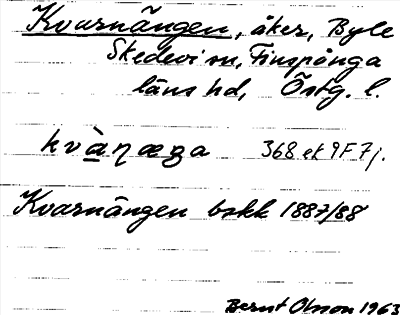 Kvarnängen, åker, Byle
Skedevi sn, Finspånga
läns hd, Östg. l.
kvàŋæga 368 ek 9F7j.
Kvarnängen bskk 1887/88
Bernt Olsson 1963